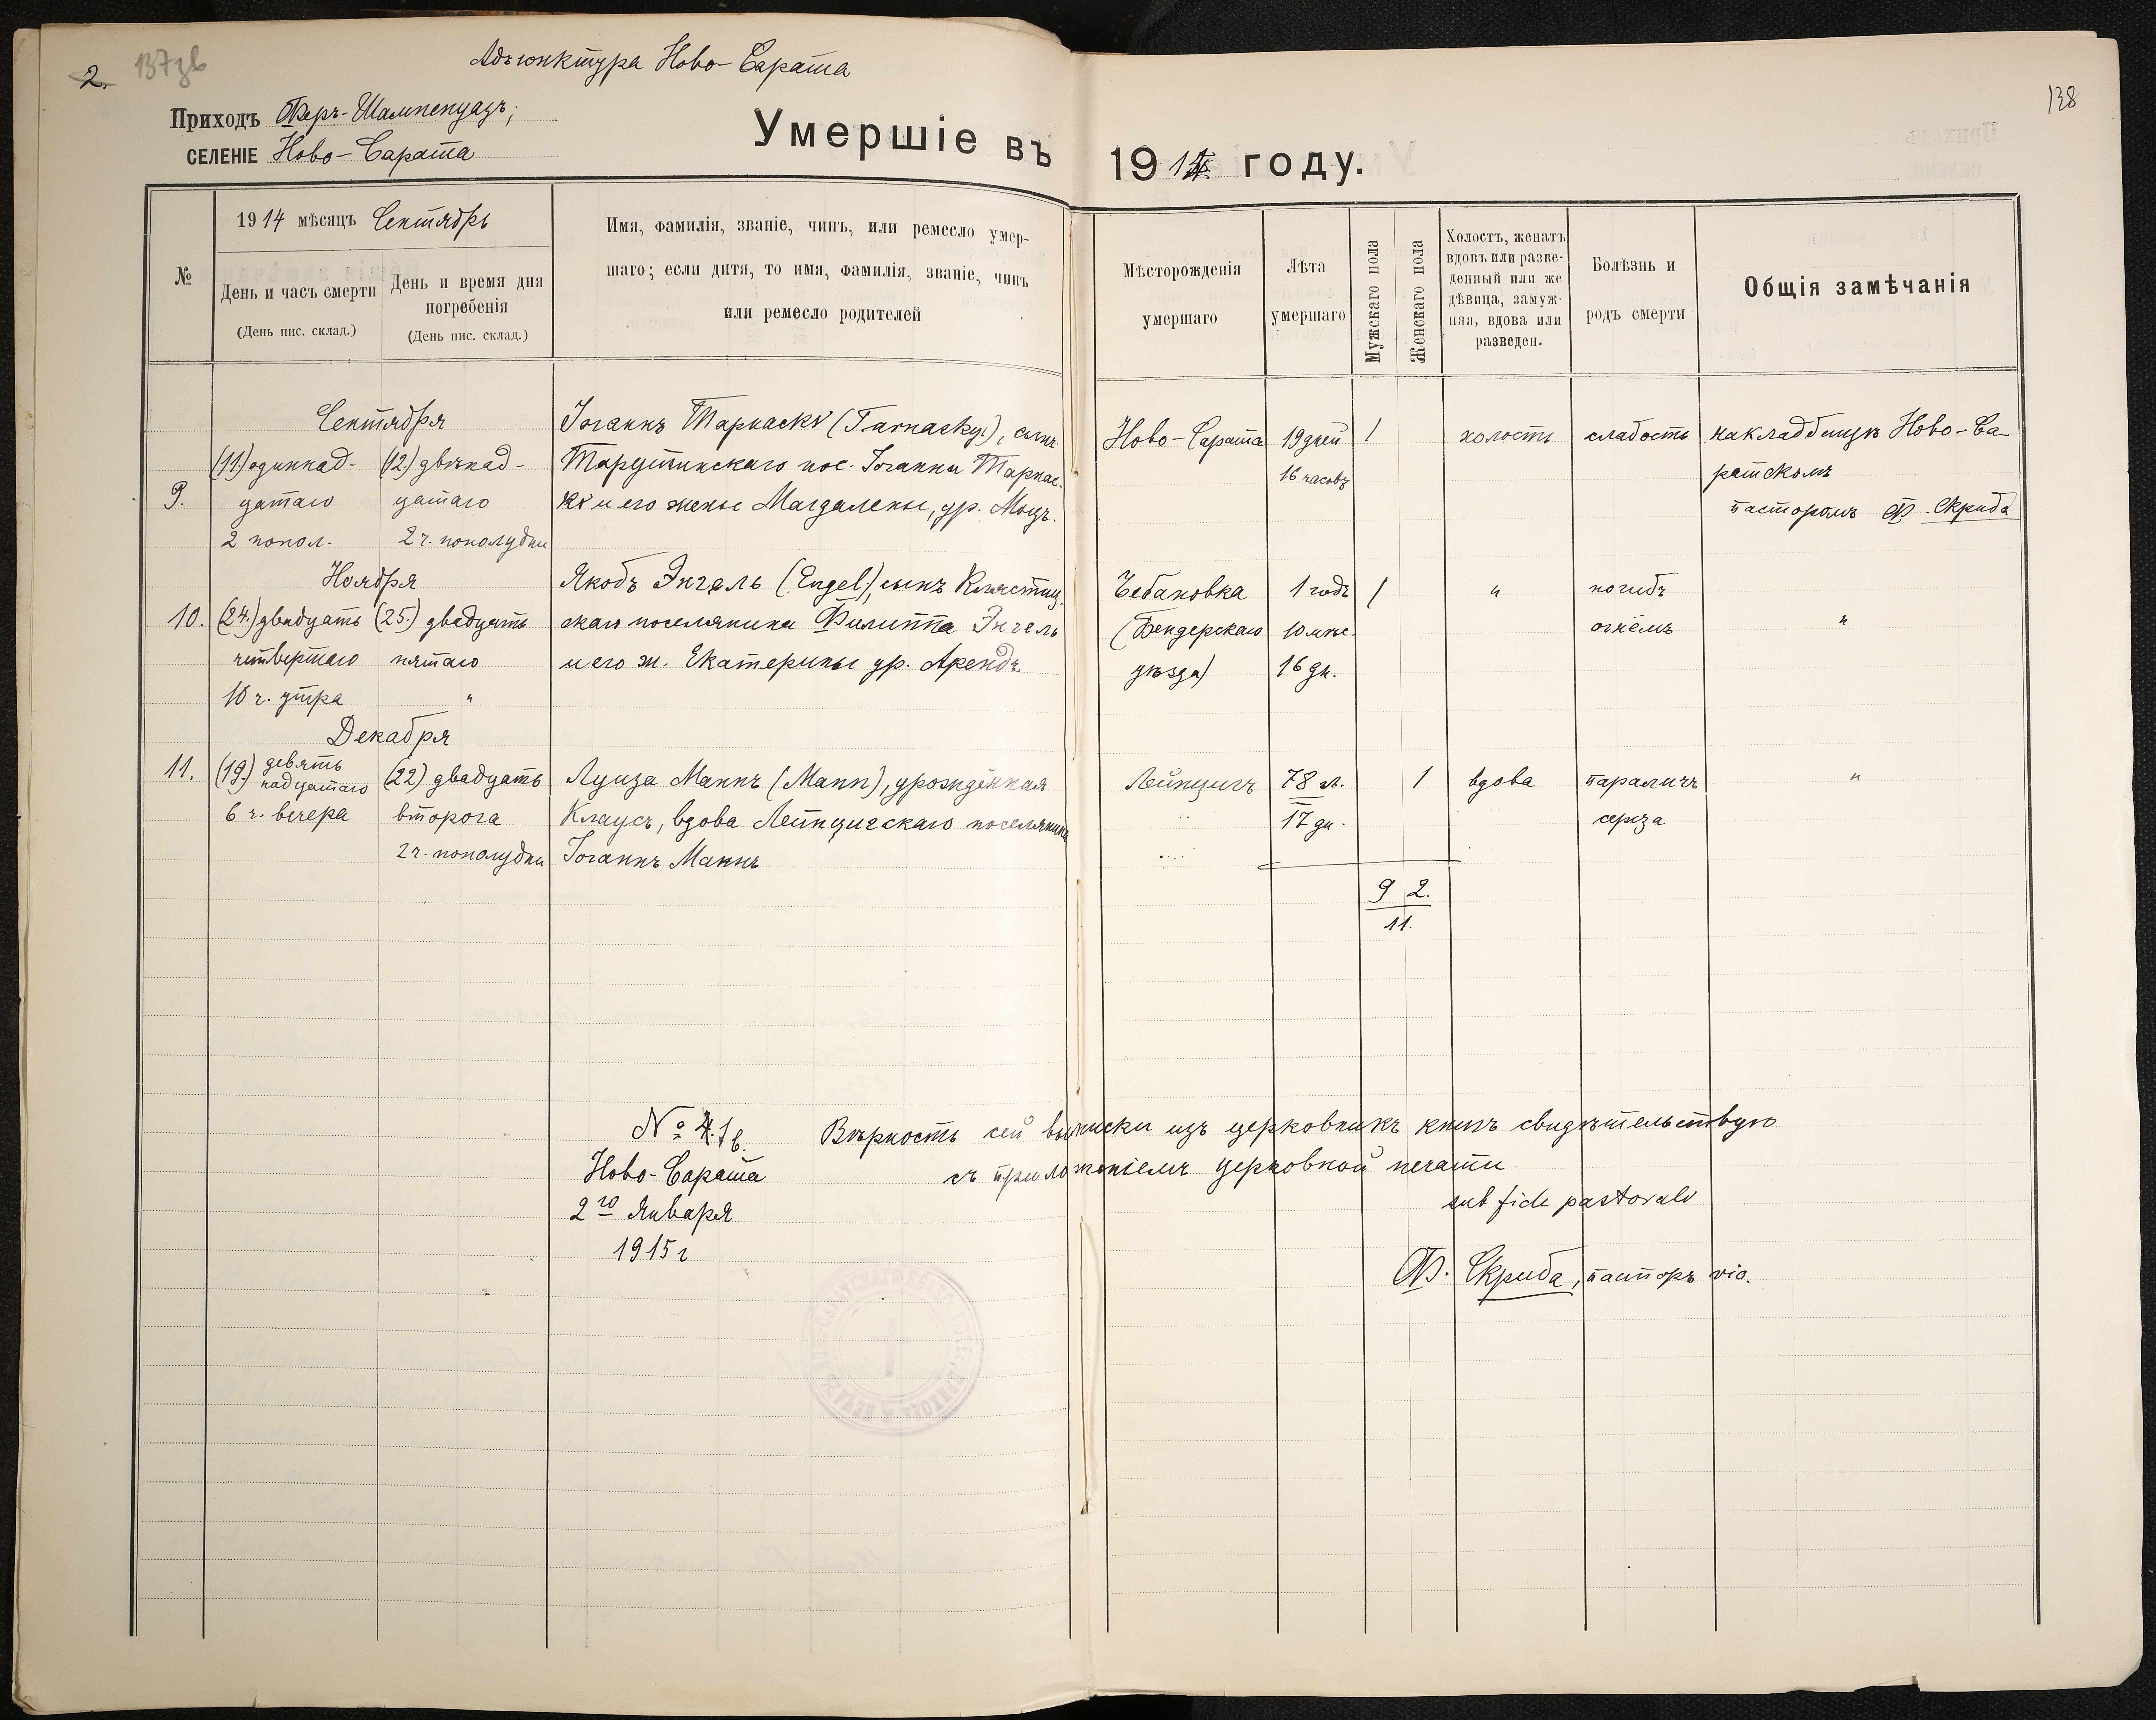 2. 137зв
Адъюнктура Ново-Сарата
138
Приходъ Феръ-Шампенуазъ;
СЕЛЕНІЕ Ново-Сарата
Умершіе въ 1914 году.
№
1914 мѣсяцъ Сентябрь
День и часъ смерти
(День пис. склад.)
День и время дня
погребенія
(День пис. склад.)
Имя, фамилія, званіе, чинъ, или ремесло умер-
шаго; если дитя, то имя, фамилія, званіе, чинъ
или ремесло родителей
Мѣсторожденія
умершаго
Лѣта
умершаго
Мужскаго пола
Женскаго пола
Холостъ, женатъ
вдовъ или разве-
денный или же
дѣвица, замуж-
няя, вдова или
разведен.
Болѣзнь и
родъ смерти
Общія замѣчанія
Сентября
9.
(11) одиннад-
цатаго
2 попол.
(12) двѣнад-
цатаго
2 ч. пополудни
Іоганнъ Тарнаски (Tarnasky), сынъ
Тарутинскаго пос. Іоганна Тарнас-
ки и его жены Магдалены, ур. Моцъ.
Ново-Сарата
19 дней
16 часовъ
1
холостъ
слабость
на кладбищѣ Ново-Са-
ратскомъ
пасторомъ Ф. Скриба
Ноября
10.
(24.) двадцать
четвертаго
10 ч. утра
(25.) двадцать
пятаго
"
Якобъ Энгель (Engel), сынъ Клястиц-
скаго поселянина Филиппа Энгель
и его ж. Екатерины ур. Арендъ
Чебановка
(Бендерскаго
уѣзда)
1 годъ
10 мѣс.
16 дн.
1
"
погибъ
огнёмъ
"
Декабря
11.
(19.) девять
надцатаго
6 ч. вечера
(22) двадцать
второга
2 ч. пополудни
Луиза Маннъ (Mann), урождённая
Клаусъ, вдова Лейпцигскаго поселянина
Іоганнъ Маннъ
Лейпцигъ
78 л.
17 дн.
1
вдова
параличъ
серца
"
9 2.
11.
№
Ново-Сарата
2го Января
1915 г
Вѣрность сей выписки изъ церковныхъ книгъ свидѣтельствую
съ приложеніемъ церковной печати
sub fide pastorali
Ф. Скриба, пасторъ vic.